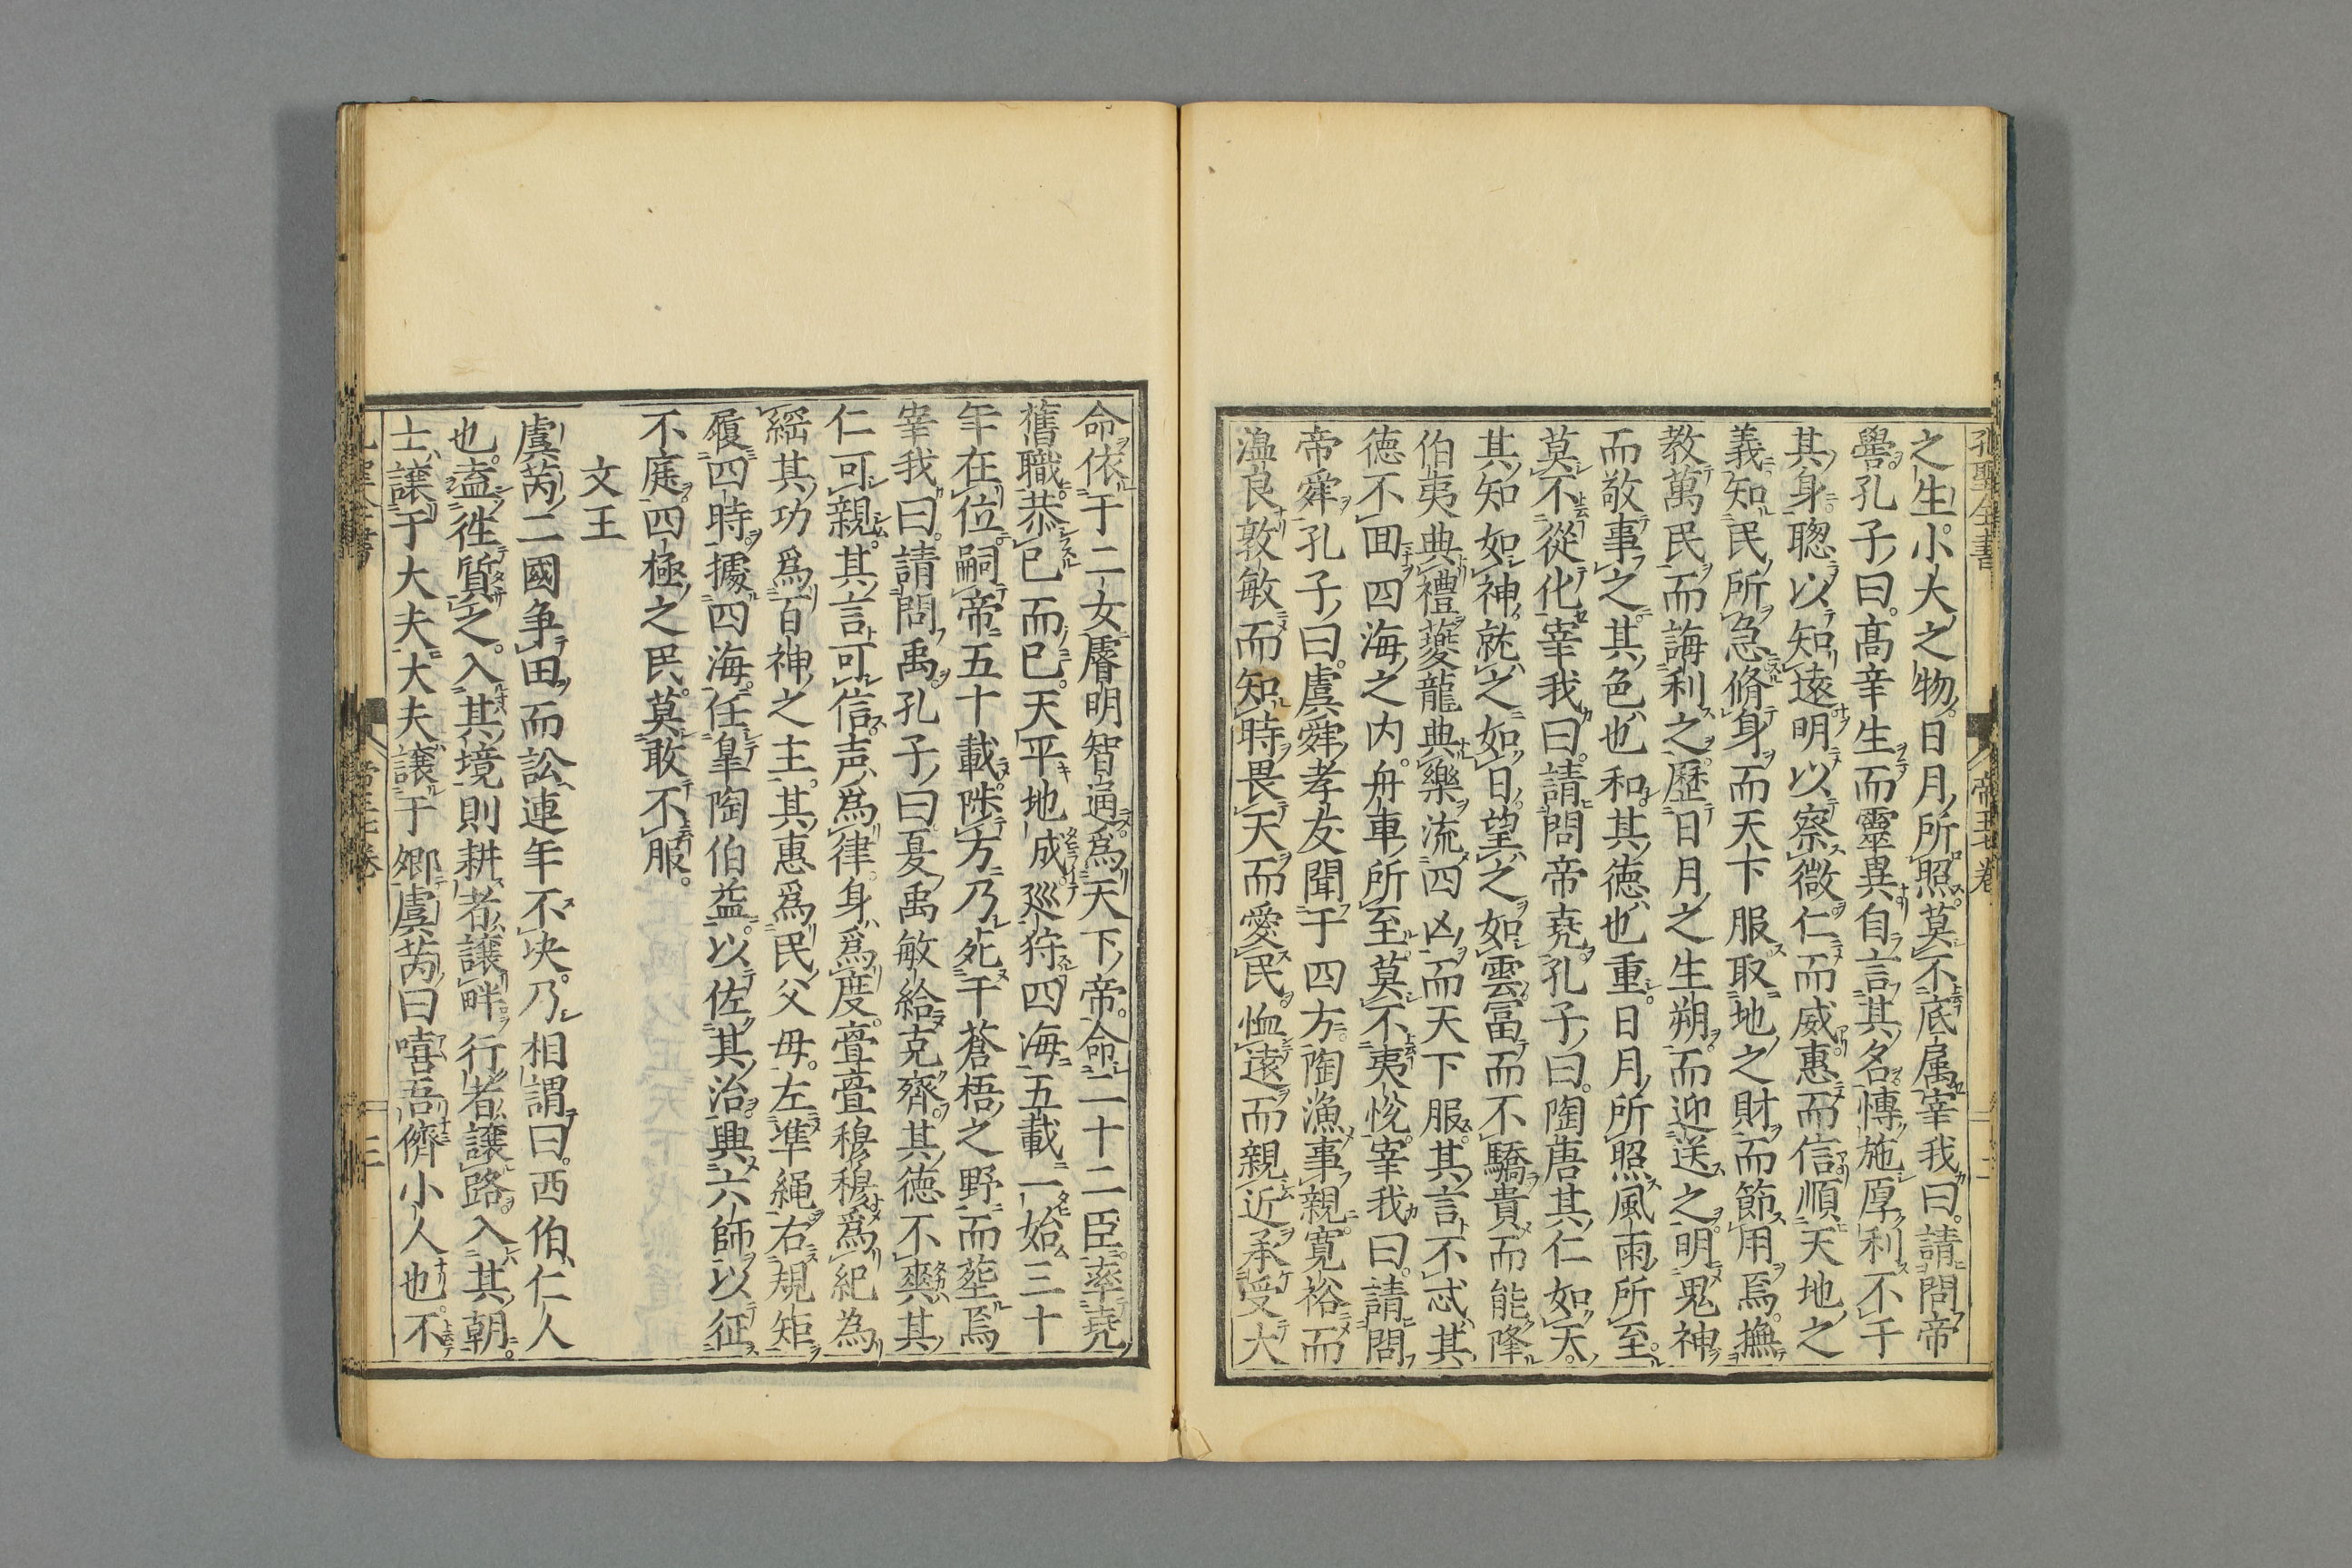 孔聖全書 帝王七卷 二
之生小大之物日月所照莫不底屬宰我曰請問帝
嚳孔子曰高辛生而靈異自言其名慱施厚利不于
其身聰以知遠明以察微仁而威惠而信順天地之
義知民所急脩身而天下服取地之財而節用焉撫
教萬民而誨利之歷日月之生朔而迎送之明鬼神
而敬事之其色也和其德也重日月所照風雨所至
莫不從化宰我曰請問帝堯孔子曰陶唐其仁如天
其知如神就之如日望之如雲富而不驕貴而能降
伯夷典禮夔龍典樂流四凶而天下服其言不忒其
德不囬四海之內舟車所至莫不夷悅宰我曰請問
帝舜孔子曰虞舜孝友聞于四方陶漁事親寬裕而
溫良敦敏而知時畏天而愛民恤遠而親近承受大
命依于二女睿明智通爲天下帝命二十二臣率堯
舊職恭已而已天平地成廵狩四海五載一始三十
年在位嗣帝五十載陟方乃死于蒼梧之野而葬焉
宰我曰請問禹孔子曰夏禹敏給克齊其德不爽其
仁可親其言可信声爲律身爲度亹亹穆穆爲紀為
綱其功爲百神之主其惠爲民父母左準繩右規矩
履四時據四海任皐陶伯益以佐其治興六師以征
不庭四極之民莫敢不服
文王
虞芮二國爭田而訟連年不决乃相謂曰西伯仁人
也盍徃質之入其境則耕者讓畔行者讓路入其朝
士讓于大夫大夫讓于卿虞芮曰嘻吾儕小人也不
三